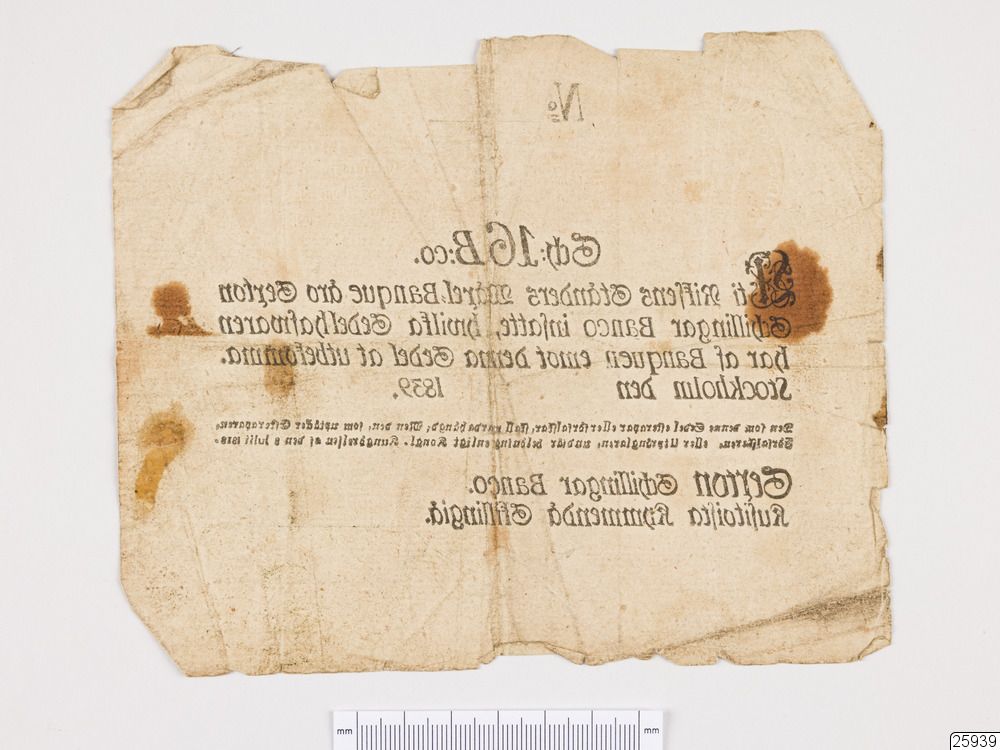 No
Sch: 16 B:co.
Uti Riksens Ständers Wäxel-Banque äro Sexton
Schillingar Banco insatte, hwilka Sedelhafwaren
har af Banquen emot denna Sedel at utbekomma.
Stockholm den 1839.
Den som denne Sedel efterapar eller förfalskar, skall warda hängd; Men den, som uptäcker Efteraparen,
Förfalskaren, eller Utprånglaren, undfår belöning enligt Kongl. Kungörelsen af den 8 Julii 1818.
Sexton Schillingar Banco.
Kusitoista Kymmendä Skillingiä.
mm
mm
25939